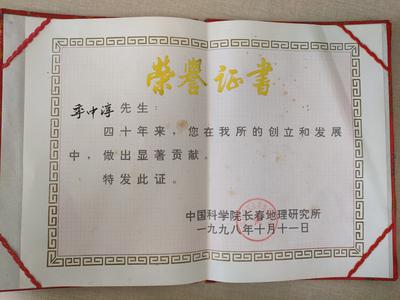 荣誉证书
季中淳先生：
四十年来，您在我所的创立和发展
中，做出显著贡献。
特发此证。
中国科学院长春地理研究所
一九九八年十月十一日